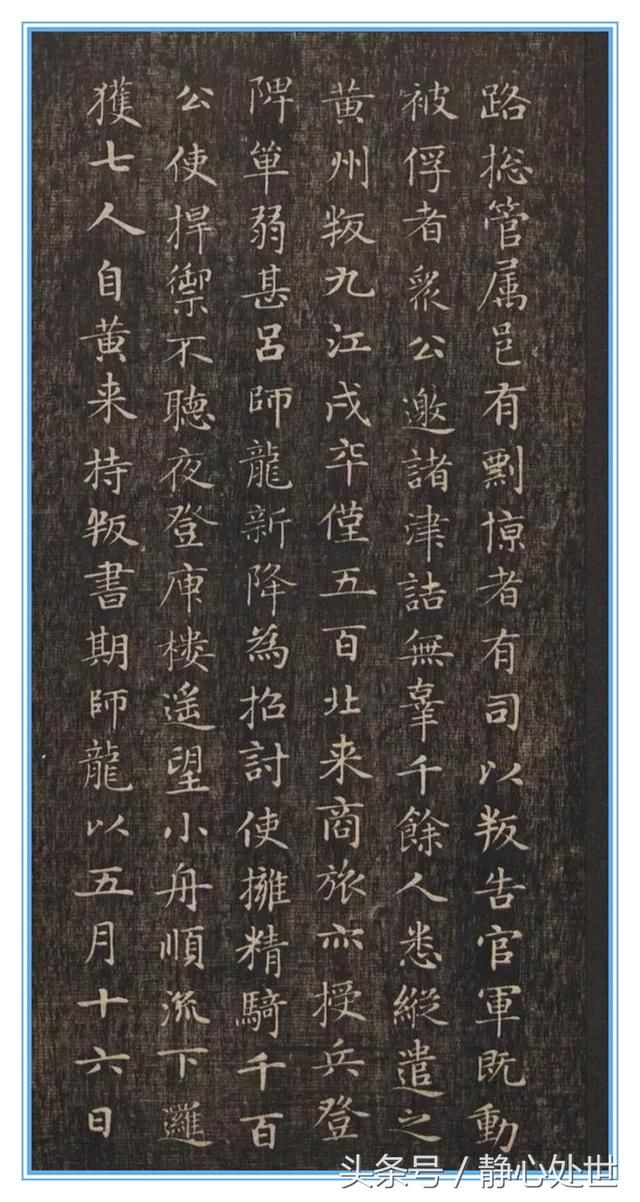 路揔管属邑有剽掠者有司以叛告官軍既動
被俘者衆公邀諸津詰無辜千餘人悉縱遣之
黄州叛九江戍卒僅五百北来商旅亦授兵登
陴單弱甚吕師龍新降為招討使擁精騎千百
公使捍禦不聽夜登庾樓遥望小舟順流下邏
獲七人自黄来持叛書期師龍以五月十六日
头条号 / 静心处世